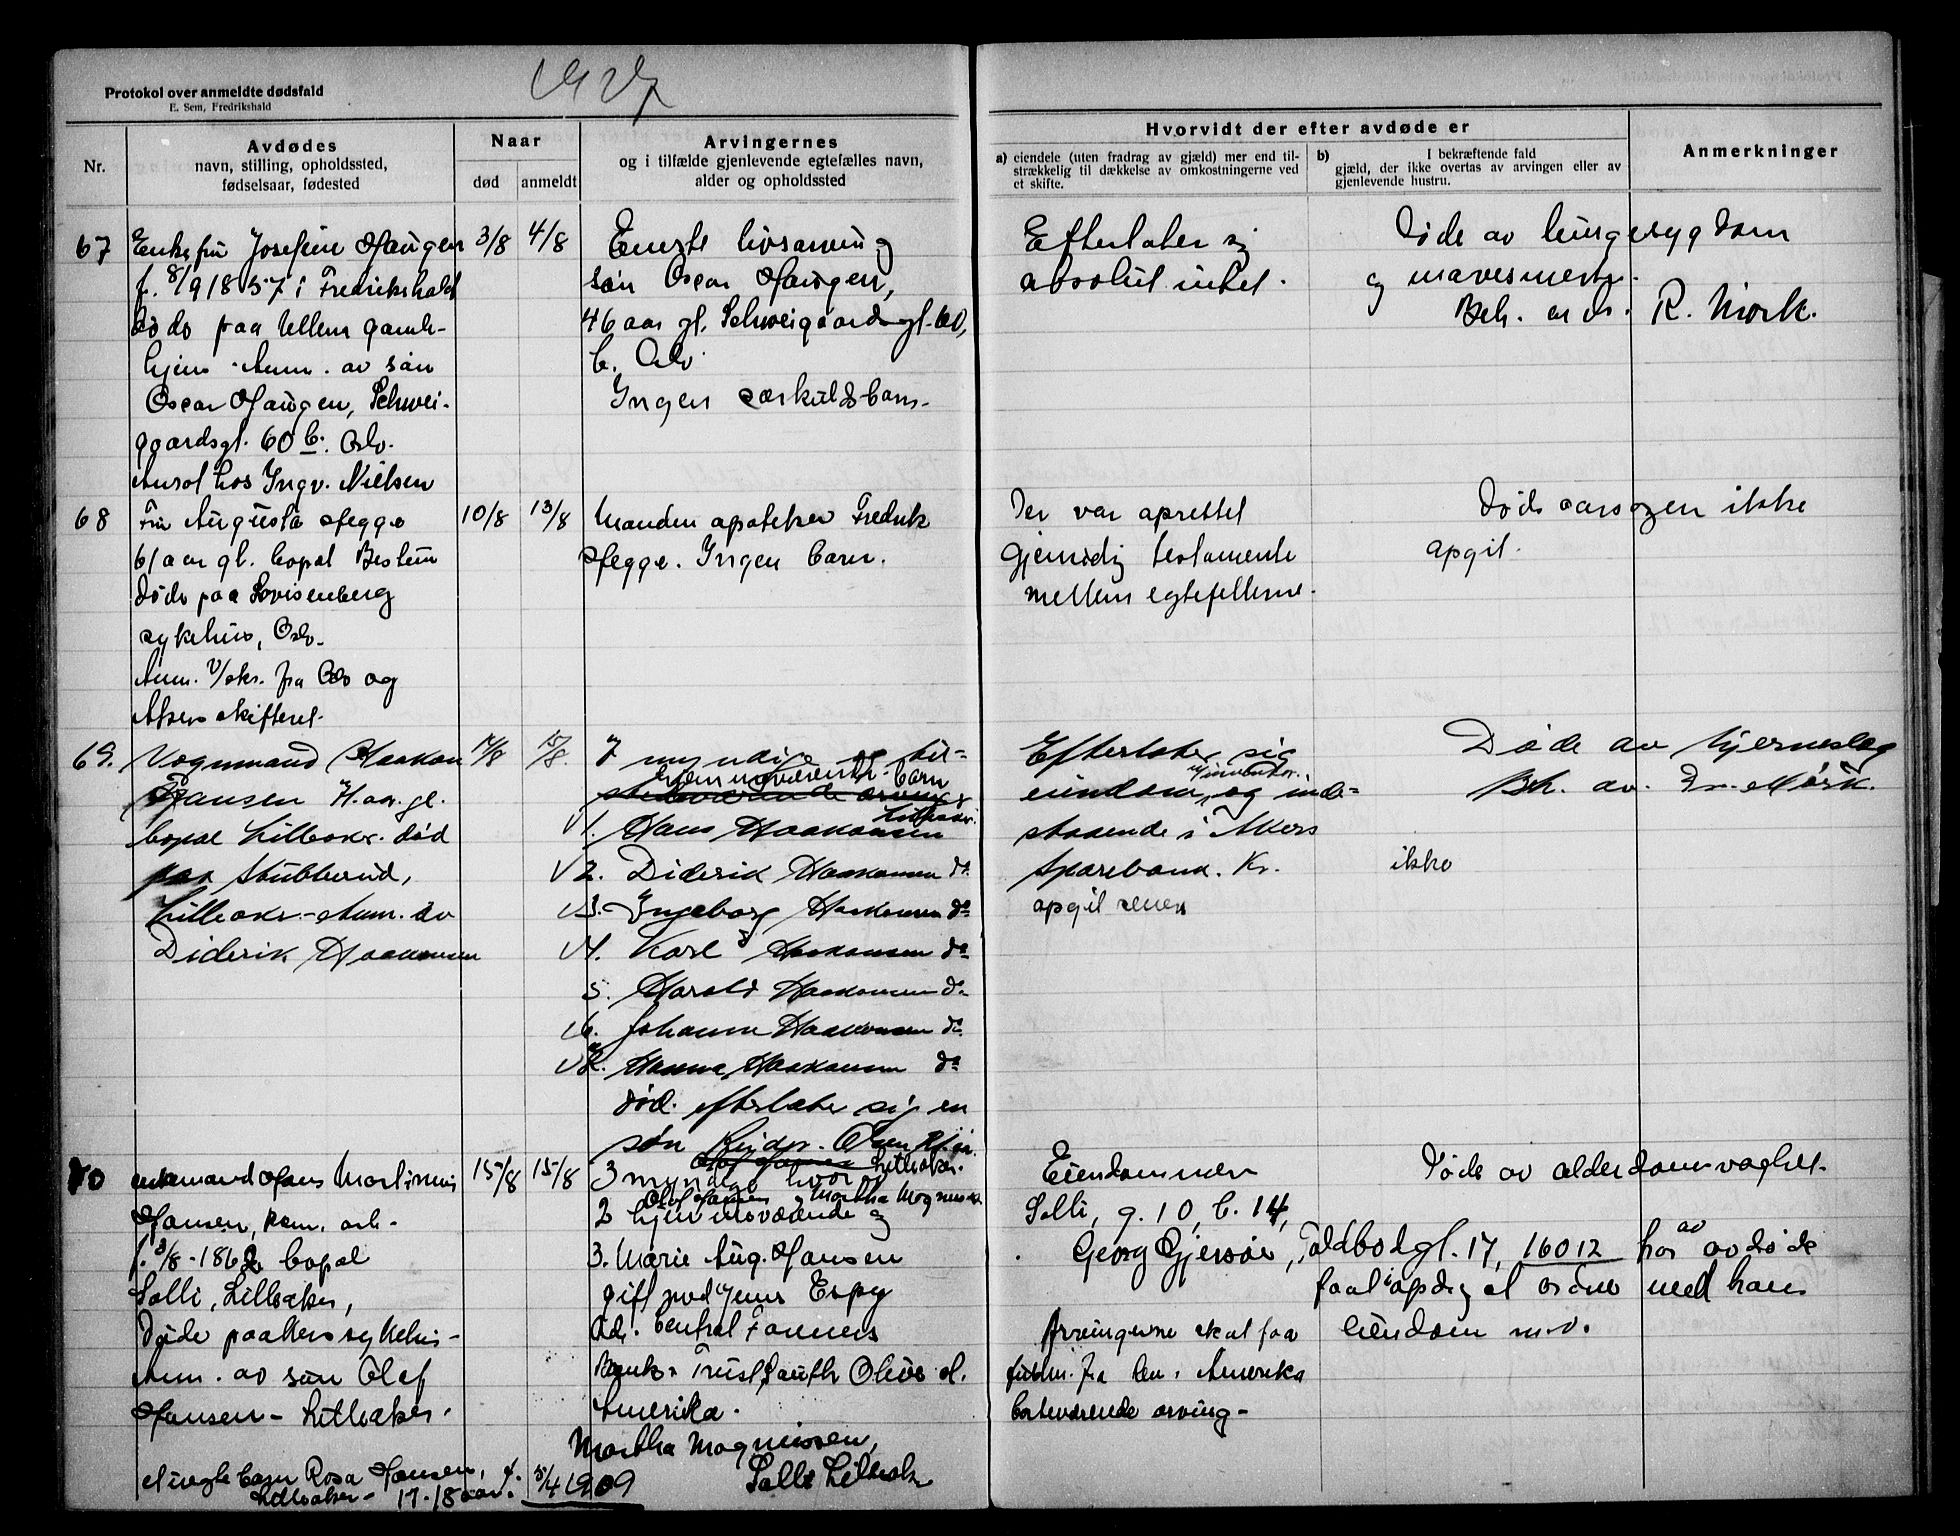 Protokol over anmeldte dødsfald
E. Sem, Fredrikshald
Nr.
Avdødes
navn, stilling, opholdssted,
fødselsaar, fødested
Naar
død
anmeldt
Arvingernes
og i tilfælde gjenlevende egtefælles navn,
alder og opholdssted
Hvorvidt der efter avdøde er
a) eiendele (uten fradrag av gjæld) mer end til-
strækkelig til dækkelse av omkostningerne ved
et skifte.
b) I bekræftende fald
gjæld, der ikke overtas av arvingen eller av
gjenlevende hustru.
Anmerkninger
67
Enkefru Josefin Haugen
f. 8/9 1857 i Fredrikshald
døde paa Ullern gamle-
hjem. Anm. av søn
Oscar Haugen, Schwei-
gaardsgt. 60 b. Oslo.
hos Ingv. Nielsen
3/8
4/8
Eneste livsarving
søn Oscar Haugen,
46 aar gl. Schweigaardsgt. 60,
b. Oslo.
Ingen særkuldsbarn.
Efterlater sig
absolut intet.
Døde av lungesygdom
og mavesmerter.
Beh. av dr. R. Mørk.
68
Fru Augusta Hegge
61 aar gl. bopæl Bestum
døde paa Lovisenberg
sykehus, Oslo.
Anm. v/skr. fra Oslo og
Akers skifteret.
10/8
13/8
Manden apoteker Fredrik
Hegge. Ingen barn.
Der var oprettet
gjensidig testamente
mellem egtefellerne.
Dødsaarsagen ikke
opgit.
69.
Vognmand Haakon
Hansen
bopæl Lilleaker. død
paa Stubberud,
Lilleaker. Anm. av
Diderik Haakonsen
14/8
15/8.
7 myndige og til-
hjemmeværende barn
1. Hans Haakonsen Lilleaker.
2. Diderik Haakonsen do.
3. Ingeborg Haakonsen do
4. Karl Haakonsen do
5. Harald Haakonsen do
6. Johanne Haakonsen do
7. Hanna Haakonsen do
død. efterlater sig en
søn Reidar Olsen
Lilleaker.
Efterlater sig
eiendom, m/inventar. og inde-
staaende i Akers
Sparebank. Kr.
opgit senere
ikke
Døde av hjerneslag
Beh. av. Dr. Mørk.
70
enkemand Hans Martinius
Hansen, kom. arb.
f. 3/8-1862 bopæl
Solli, Lilleaker,
døde paa Akers sykehus-
Anm. av søn Olaf
Hansen - Lilleaker.
15/8
15/8
3 myndige hvorav
Olaf Hansen og Martha Magnussen
2 hjemmeværende og
3. Marie Aug. Hansen
gift med Jens Espy
Adr. Central Farmers
Bank & Trust, South
Amerika.
Martha Magnussen,
Solli Lilleaker
Eiendommen
Solli, g. 10, b. 14,
Georg Gjersøe, Toldbodgt. 17, 16012 har av avdøde
faat i opdrag at ordne med hans
eiendom m.v.
Arvingerne skal faa
fuldm. fra den i Amerika
bortværende arving-
Døde av alderdomsvaghet.
barn Rosa Hansen, f. 5/4 1909
Lilleaker - 17-18 aar.